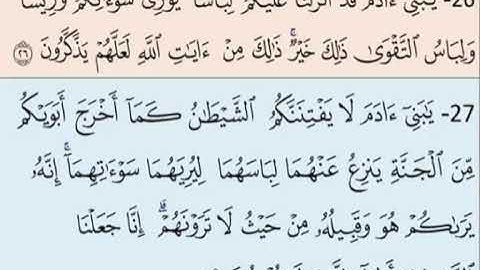 26- يَٰبَنِىٓ ءَادَمَ قَدْ أَنزَلْنَا عَلَيْكُمْ لِبَاسًا يُوَٰرِى سَوْءَٰتِكُمْ وَرِيشًا
وَلِبَاسُ التَّقْوَىٰ ذَٰلِكَ خَيْرٌۚ ذَٰلِكَ مِنْ ءَايَٰتِ اللَّهِ لَعَلَّهُمْ يَذَّكَّرُونَ ٢٦
27- يَٰبَنِىٓ ءَادَمَ لَا يَفْتِنَنَّكُمُ الشَّيْطَٰنُ كَمَآ أَخْرَجَ أَبَوَيْكُم
مِّنَ الْجَنَّةِ يَنزِعُ عَنْهُمَا لِبَاسَهُمَا لِيُرِيَهُمَا سَوْءَٰتِهِمَآۗ إِنَّهُۥ
يَرَىٰكُمْ هُوَ وَقَبِيلُهُۥ مِنْ حَيْثُ لَا تَرَوْنَهُمْۗ إِنَّا جَعَلْنَا